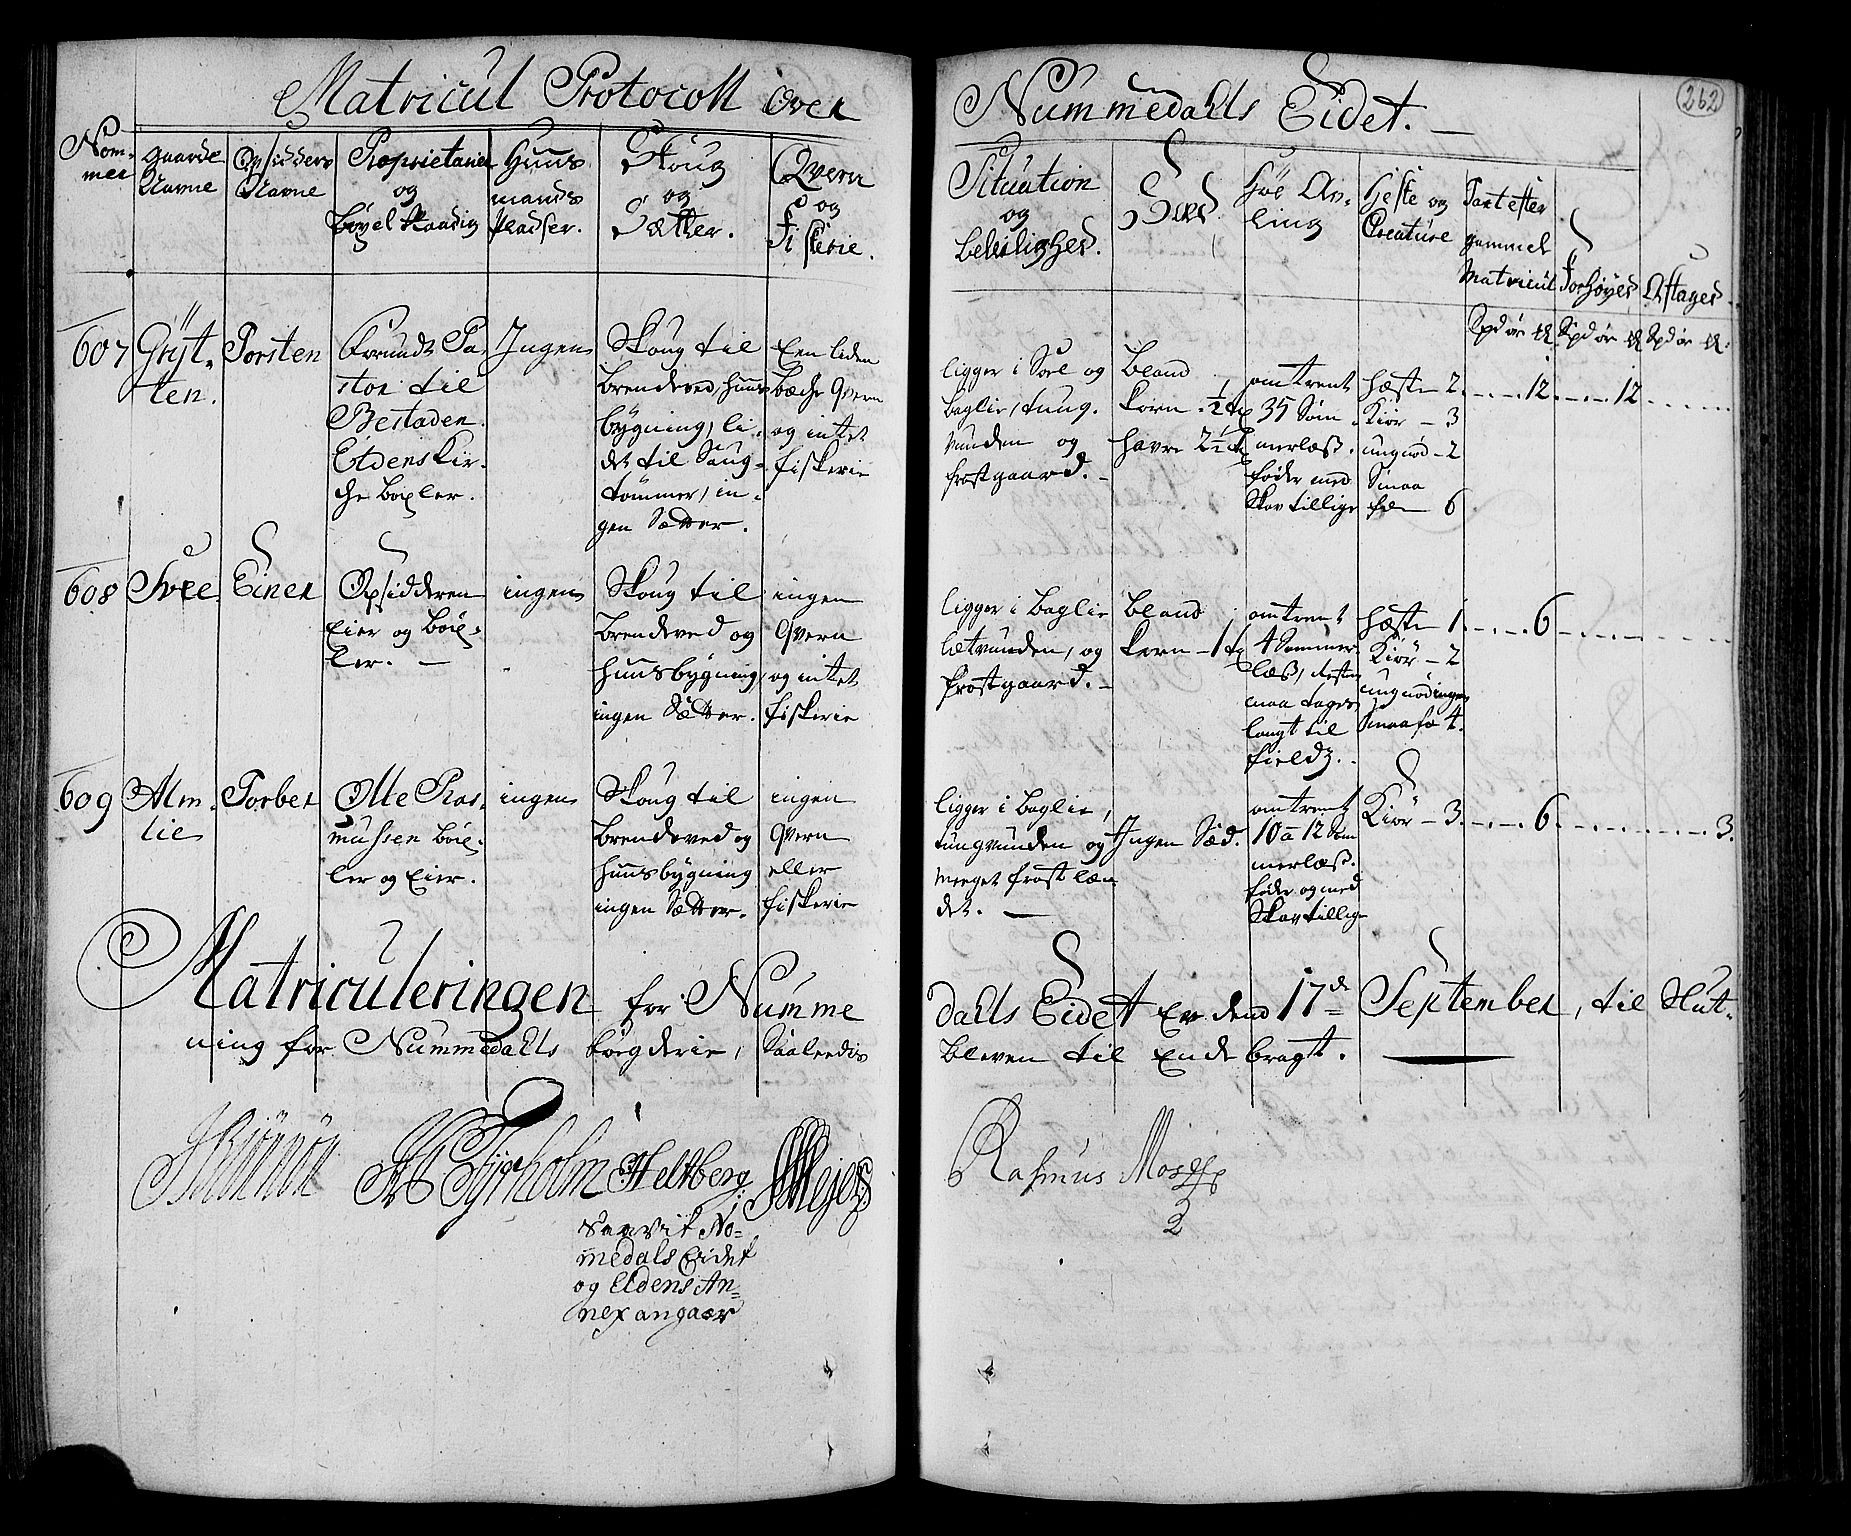 Matricul Protocoll over
Nummedahls Eidet.
262
Nom-
mer
Gaarde
Navne
Opsidders
Navne
Proprietarier
og
Bøxel Raadig
Huus
mands
Pladser.
Skoug
og
Sætter.
Qvern
og
Fiskerie.
Situation
og
Beleilighed.
Sæd.
Høe Av-
ling
Heste og
Creature
Taxt efter
gammel
Matricul
Forhøyed
Aftaget
Spd ør
Spd ør
Spd ør
607
Grÿt-
ten.
Torsten
Pa-
stor til
Bestaden
Eldens Kir-
che boxler.
Ingen
Skoug til
brendeved, huus
bygning, li-
det til Saug-
tømmer, in-
gen Sætter.
Een liden
bæche qvern
og intet
fiskerie
ligger i Soel og
baglie, tung-
vunden og
frostgaard.
bland
korn - ½
havre 2½
omtrent
35 Søm
merlæs.
føder med
Skav tillige
hæste 2
Kiør - 3
ungnød - 2
Smaa
fæe 6
12
12
608
Svee
Einer
Opsidderen
Eier og bøx-
ler.
ingen
Skoug til
brendeved og
huusbygning
ingen Sætter.
ingen
qvern
og intet
fiskerie
ligger i baglie
letvunden, og
frostgaard.
bland
korn - 1
omtrent
4 Sommer
læs, resten
maa tages
langt til
fields.
hæste 1
Kiør - 2
ungnød ingen
Smaafæ 4.
6
609
Alm-
lie
Torber
Olle Ras-
mussen bøx-
ler og Eier.
ingen
Skoug til
brendeved og
huusbygning
ingen Sætter.
ingen
qvern
eller
fiskerie
ligger i baglie,
tungvunden og
meeget frostlæn-
det.
Ingen Sæd.
omtrent
10 a 12 Som
merlæs.
føder og med
Skav tillige
Kiør - 3
6
3.
Matriculeringen for Numme
dahls Eidet Er dend 17de September, til Slut-
ning for Nummedahls fogderie, Saaleedis
bleven til Ende bragt.
Tÿrholm
Heltberg
Rasmus
saavit No-
medals Eidet
og Eldens An-
nex angaaer
2